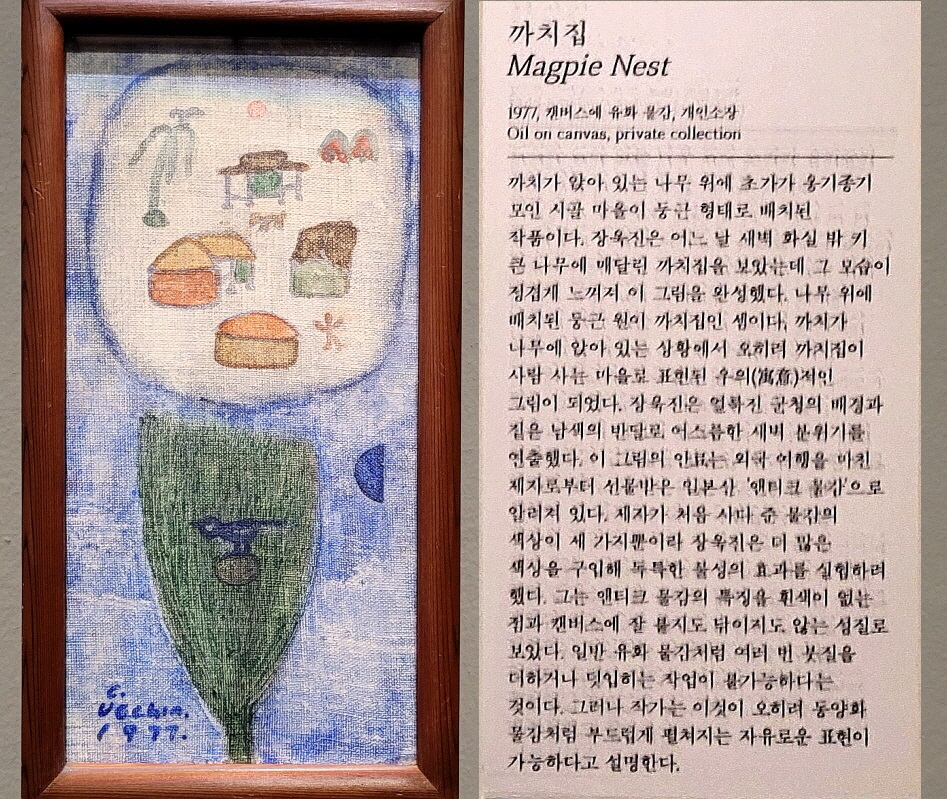 C.
UCCHIN.
1977.
까치집
Magpie Nest
1977, 캔버스에 유화 물감, 개인소장
Oil on canvas, private collection
까치가 앉아 있는 나무 위에 초가가 옹기종기
모인 시골 마을이 둥근 형태로 배치된
작품이다. 장욱진은 어느 날 새벽 화실 밖 키
큰 나무에 매달린 까치집을 보았는데 그 모습이
정겹게 느껴져 이 그림을 완성했다. 나무 위에
배치된 둥근 원이 까치집인 셈이다. 까치가
나무에 앉아 있는 상황에서 오히려 까치집이
사람 사는 마을로 표현된 우의(寓意)적인
그림이 되었다. 장욱진은 얼룩진 군청의 배경과
짙은 남색의 반달로 어스름한 새벽 분위기를
연출했다. 이 그림의 안료는 외국 여행을 마친
제자로부터 선물받은 일본산 '앤티크 물감'으로
알려져 있다. 제자가 처음 사다 준 물감의
색상이 세 가지뿐이라 장욱진은 더 많은
색상을 구입해 독특한 물성의 효과를 실험하려
했다. 그는 앤티크 물감의 특징을 흰색이 없는
점과 캔버스에 잘 붙지도 닦이지도 않는 성질로
보았다. 일반 유화 물감처럼 여러 번 붓질을
더하거나 덧입히는 작업이 불가능하다는
것이다. 그러나 작가는 이것이 오히려 동양화
물감처럼 부드럽게 펼쳐지는 자유로운 표현이
가능하다고 설명한다.